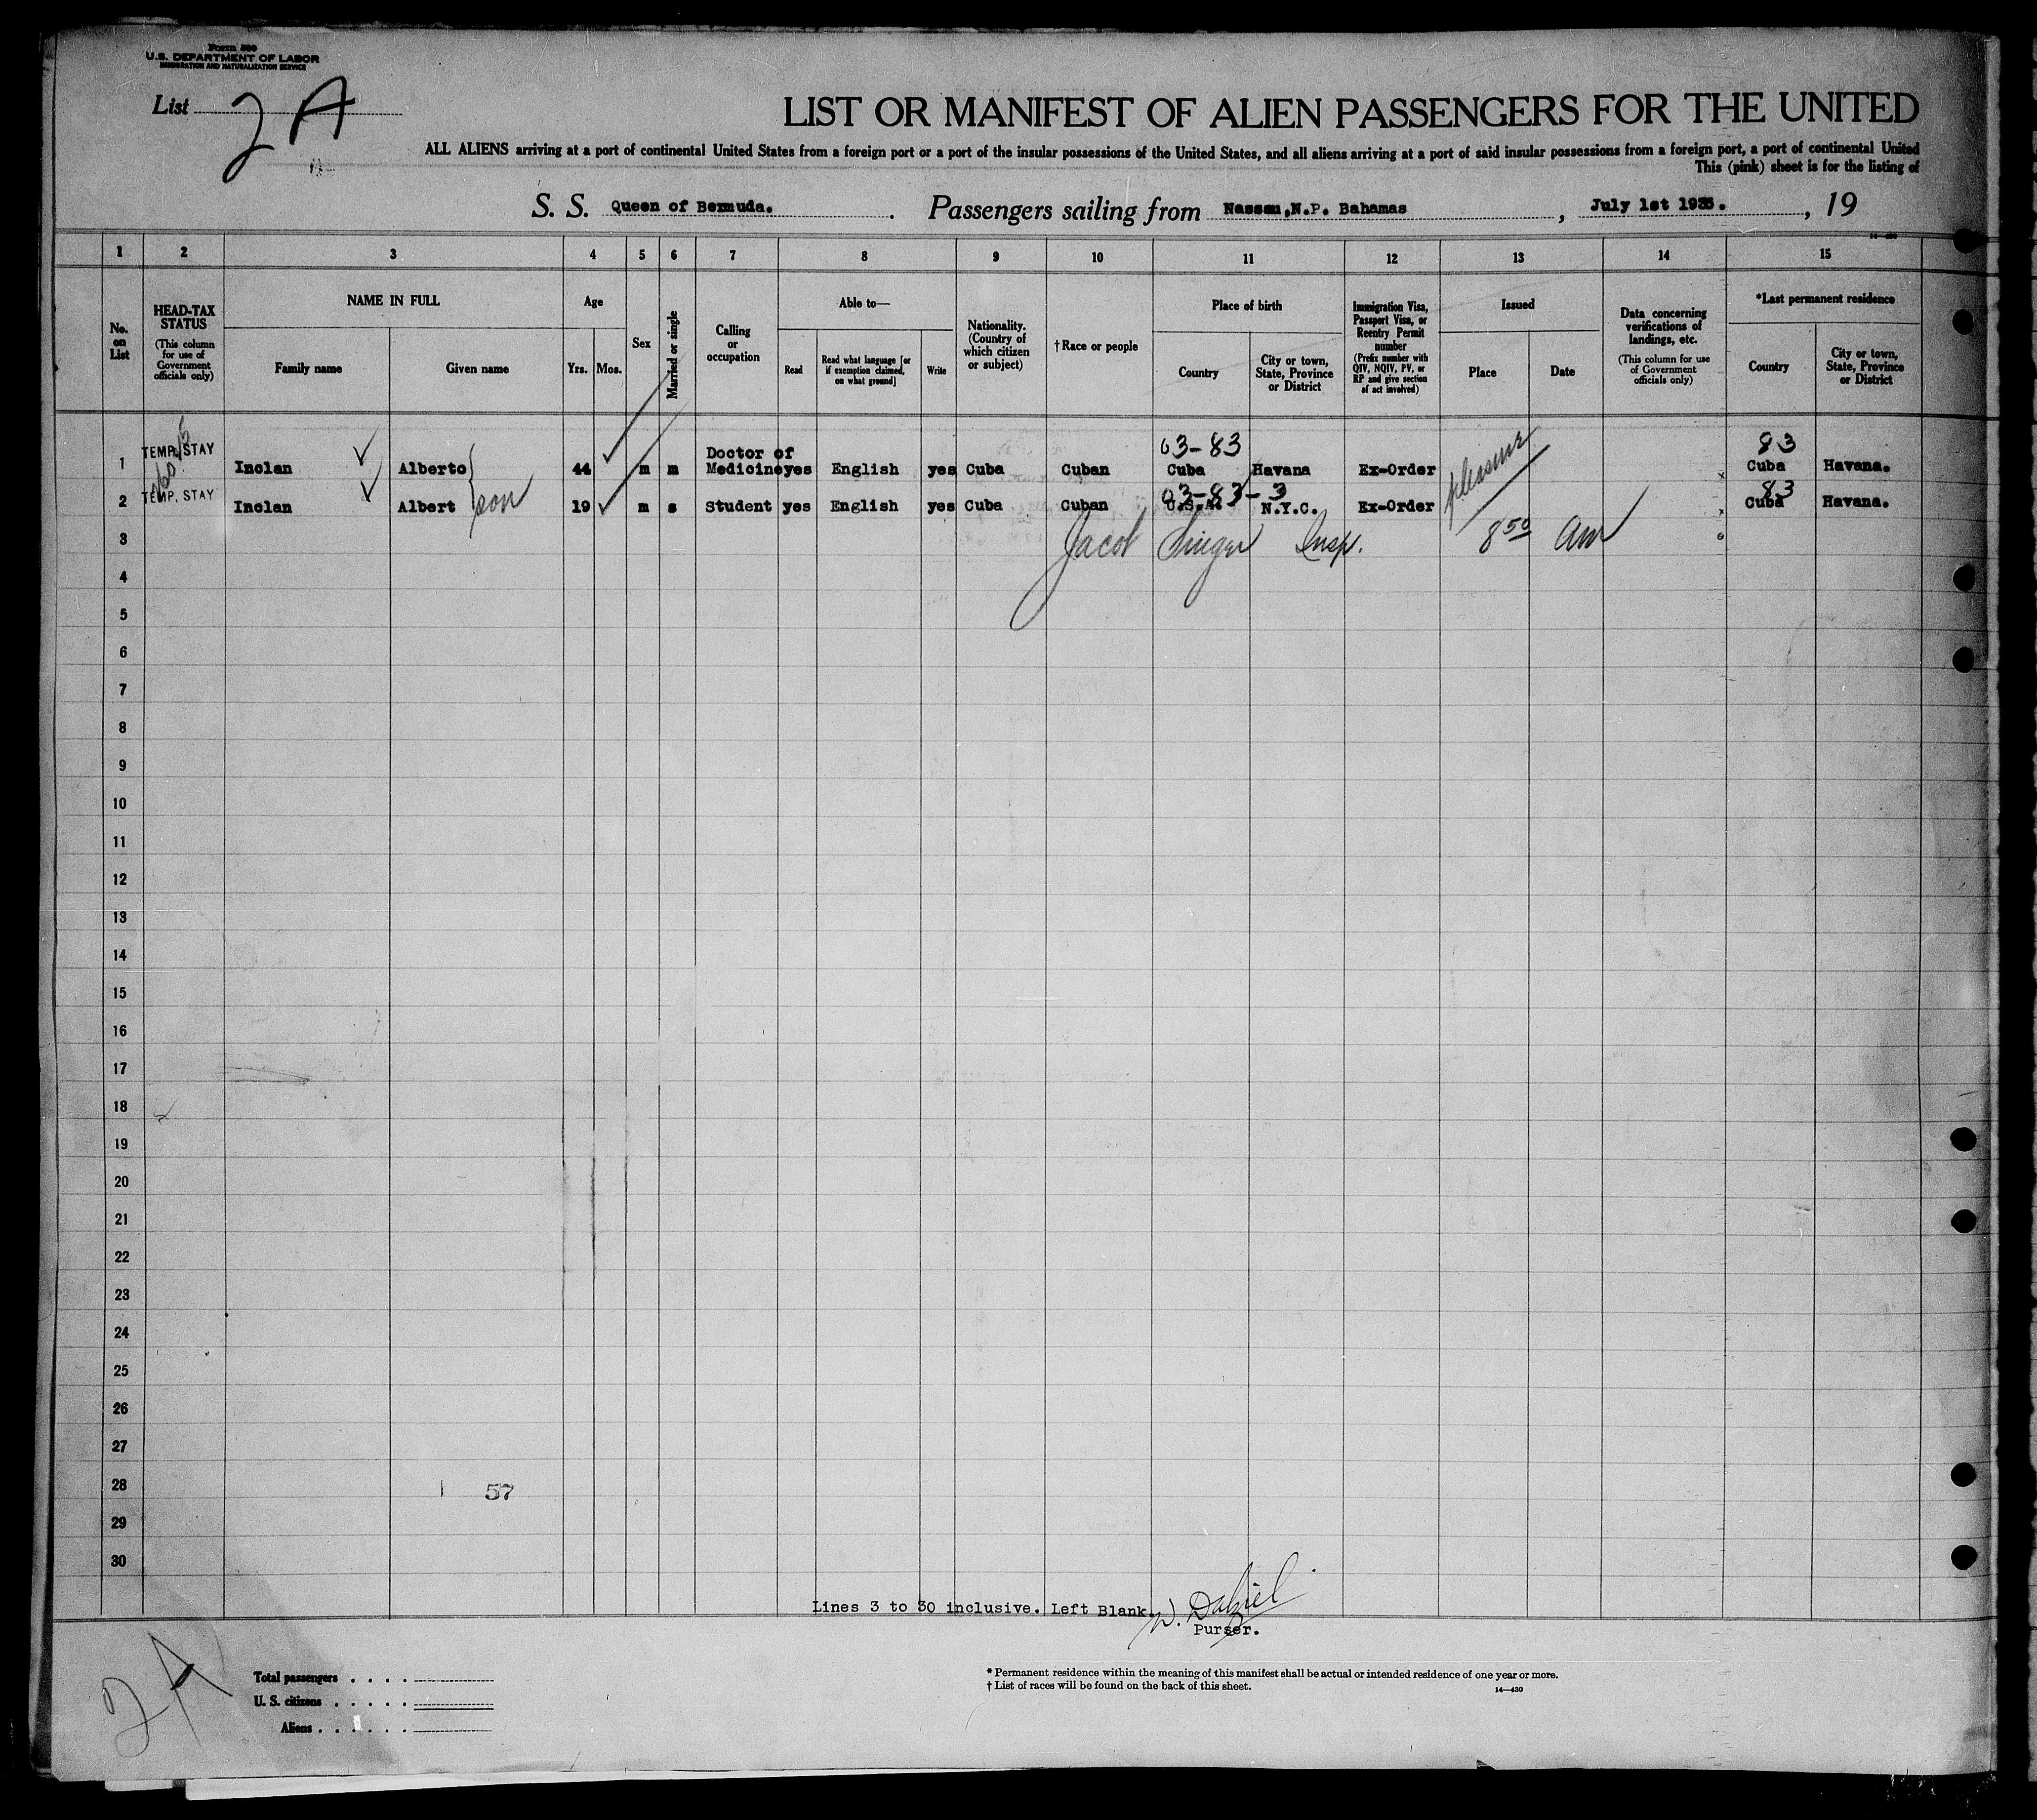 Form 500
U.S. DEPARTMENT OF LABOR
IMMIGRATION AND NATURALIZATION SERVICE
List 2 A
LIST OR MANIFEST OF ALIEN PASSENGERS FOR THE UNITED
ALL ALIENS arriving at a port of continental United States from a foreign port or a port of the insular possessions of the United States, and all aliens arriving at a port of said insular possessions from a foreign port, a port of continental United
This (pink) sheet is for the listing of
S. S. Queen of Bermuda. Passengers sailing from Nassau,N.P. Bahamas, July 1st 1935., 19
1 2 3 4 5 6 7 8 9 10 11 12 13 14 15
No. on List
HEAD-TAX STATUS (This column for use of Government officials only)
NAME IN FULL
Family name Given name
Age
Yrs. Mos.
Sex
Married or single
Calling or occupation
Able to—
Read Read what language [or if exemption claimed, on what ground] Write
Nationality. (Country of which citizen or subject)
†Race or people
Place of birth
Country City or town, State, Province or District
Immigration Visa, Passport Visa, or Reentry Permit number (Prefix number with QIV, NQIV, PV, or RP and give section of act involved)
Issued
Place Date
Data concerning verifications of landings, etc. (This column for use of Government officials only)
*Last permanent residence
Country City or town, State, Province or District
03-83 83
1 TEMP. STAY Inclan Alberto 44 m m Doctor of Medicine yes English yes Cuba Cuban Cuba Havana Ex-Order pleasure Cuba Havana.
03-83-3 83
2 TEMP. STAY Inclan Albert son 19 m s Student yes English yes Cuba Cuban U.S.A. N.Y.C. Ex-Order Cuba Havana.
3 Jacob Singer Insp. 8 50 am
4
5
6
7
8
9
10
11
12
13
14
15
16
17
18
19
20
21
22
23
24
25
26
27
28 57
29
30
Lines 3 to 30 inclusive. Left Blank. W. Dalziel
Purser.
2 A
Total passengers . . . .
U. S. citizens . . . . .
Aliens . . . . . .
* Permanent residence within the meaning of this manifest shall be actual or intended residence of one year or more.
† List of races will be found on the back of this sheet. 14—430